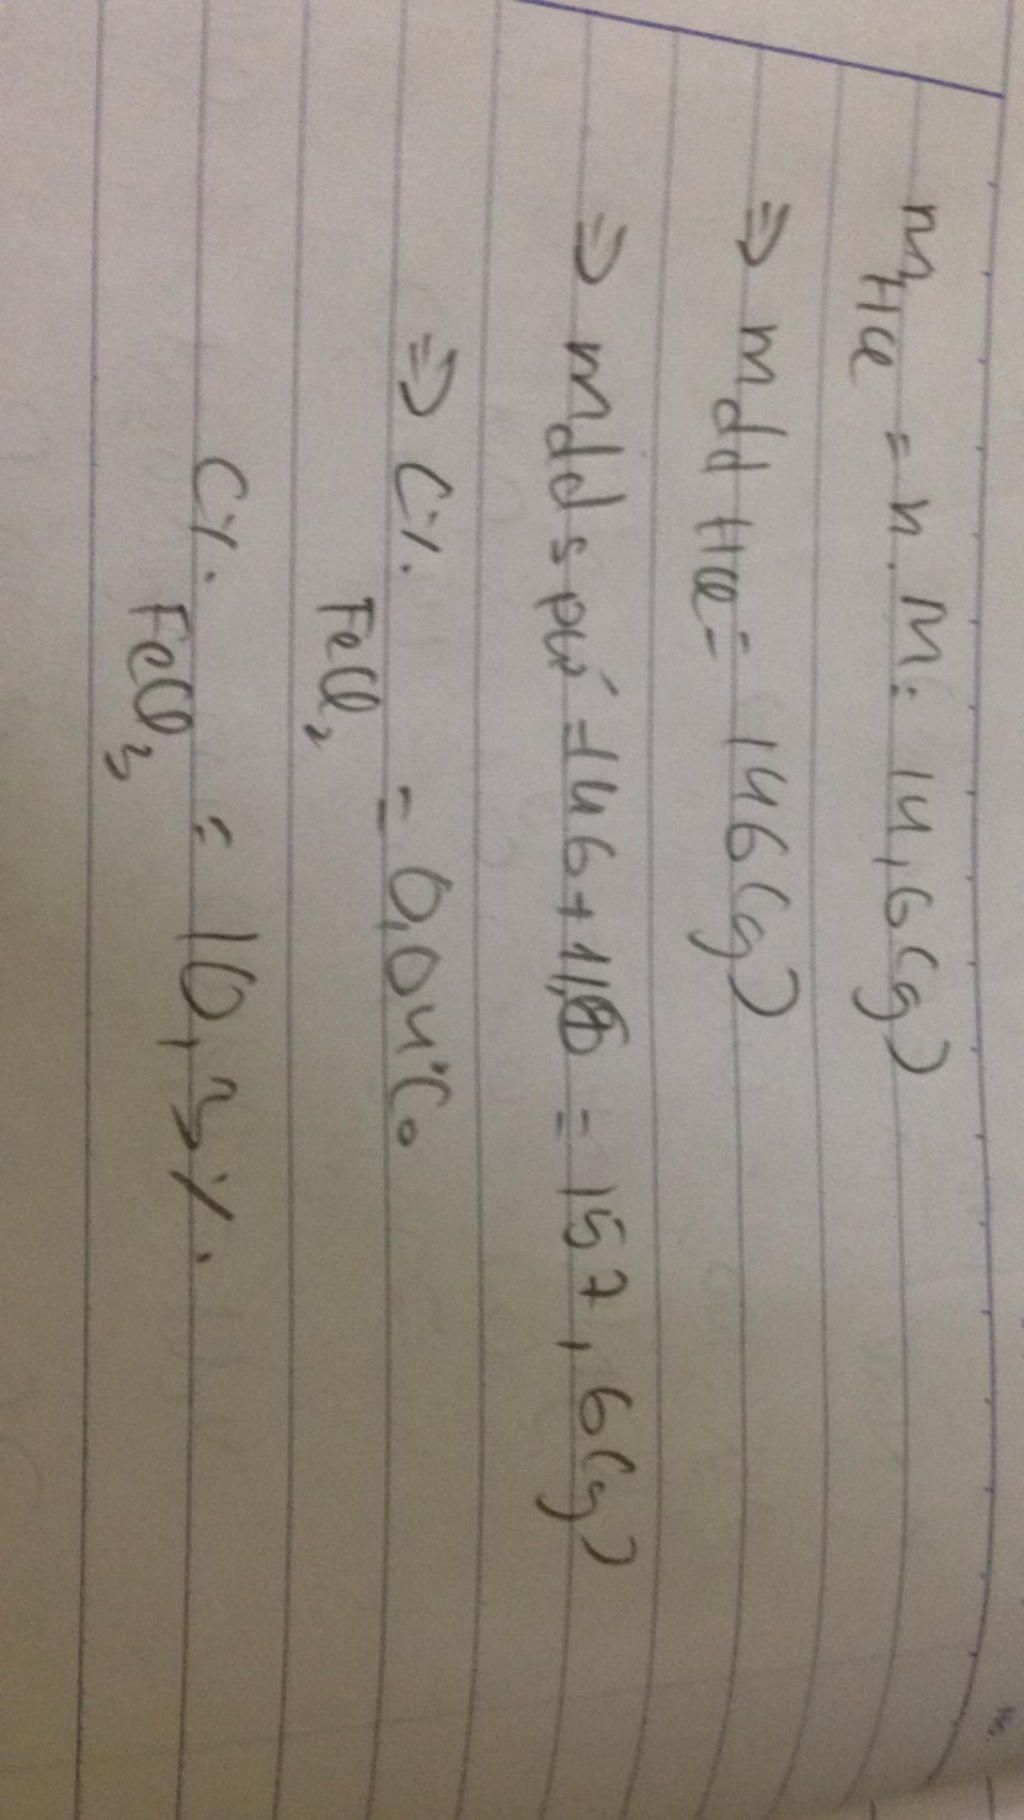 mHCl = n.M = 14,6(g)
=> mdd HCl = 146(g)
=> mdd spư = 146 + 11,6 = 157,6(g)
=> C% FeCl2 = 0,04%
C% FeCl3 = 10,3%